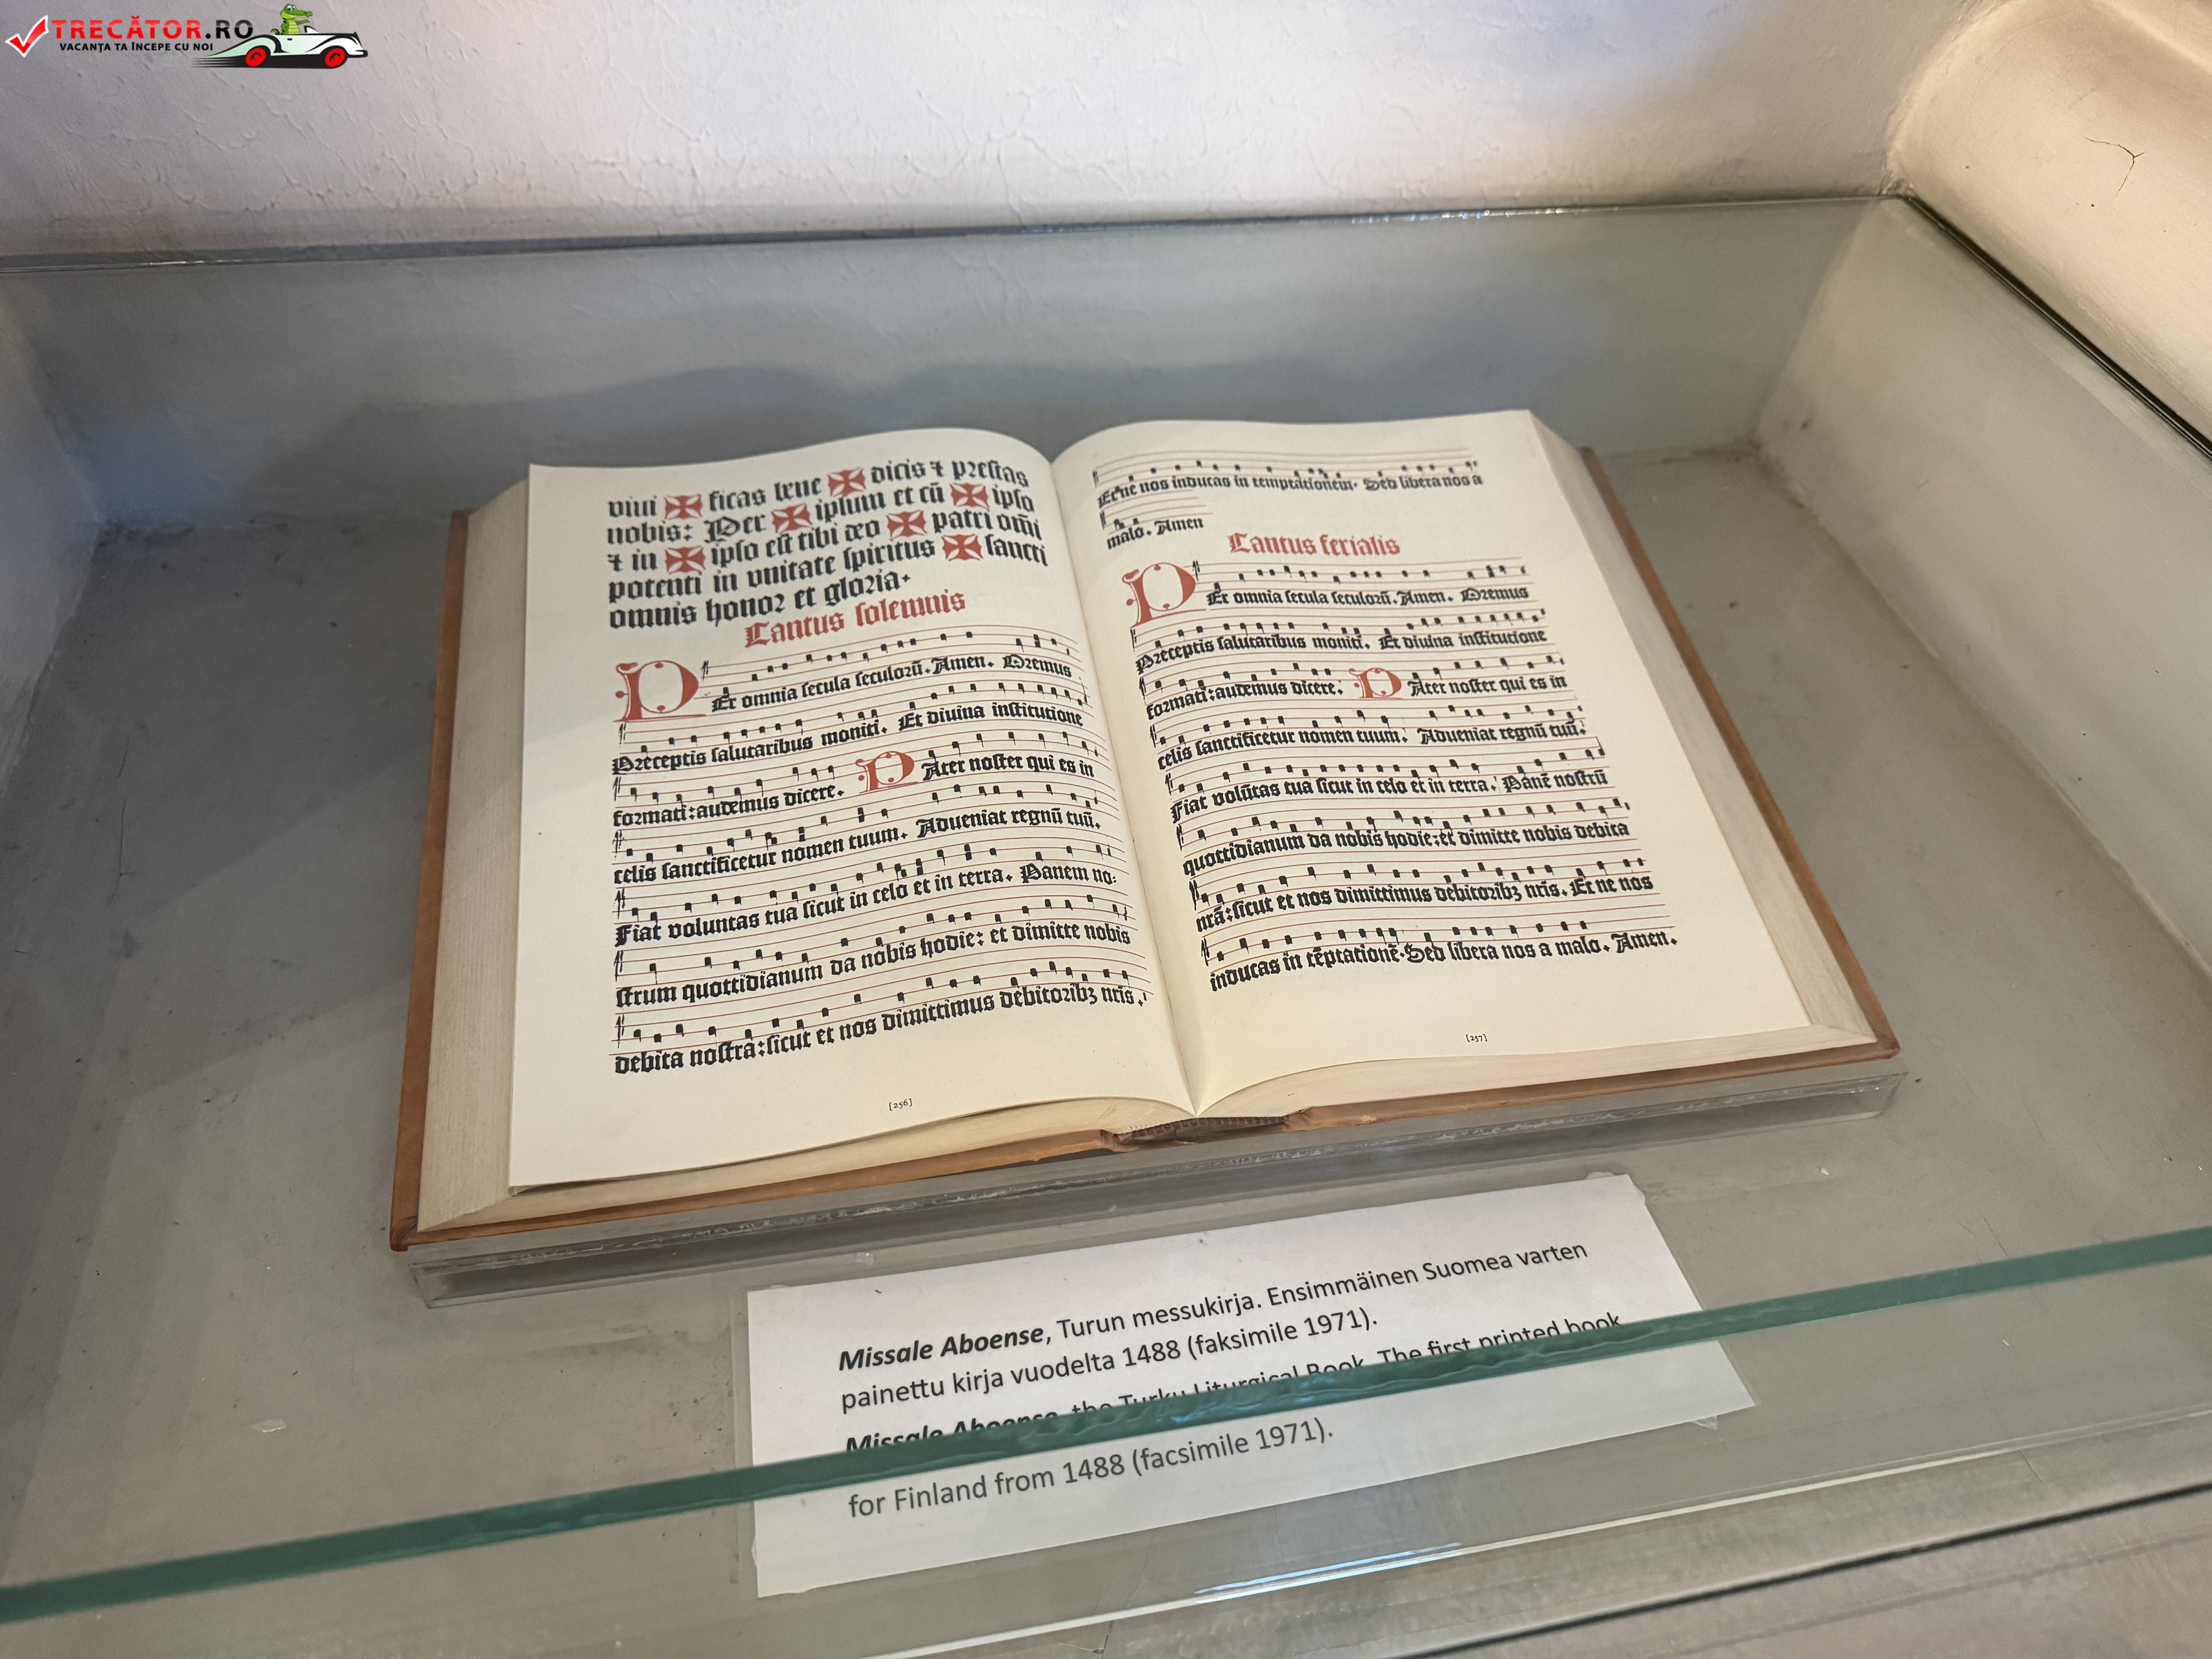 TRECĂTOR.RO
VACANȚA TA ÎNCEPE CU NOI
viui ✠ ficas bene ✠ dicis ⁊ prestas
nobis: Per ✠ ipsum et cū ✠ ipso
⁊ in ✠ ipso est tibi deo ✠ patri om̄i
potenti in vnitate spiritus ✠ sancti
omnis honor et gloria.
Cantus solemnis
PEr omnia secula seculorū. Amen. Oremus
Preceptis salutaribus moniti. Et diuina institutione
formati: audemus dicere. PAter noster qui es in
celis sanctificetur nomen tuum. Adueniat regnū tuū.
Fiat voluntas tua sicut in celo et in terra. Panem no:
strum quottidianum da nobis hodie: et dimitte nobis
debita nostra: sicut et nos dimittimus debitoribꝫ nr̄is.
[256]
Et ne nos inducas in temptationem. Sed libera nos a
malo. Amen
Cantus ferialis
PEr omnia secula seculorū. Amen. Oremus
Preceptis salutaribus moniti. Et diuina institutione
formati: audemus dicere. PAter noster qui es in
celis sanctificetur nomen tuum. Adueniat regnū tuū.
Fiat volūtas tua sicut in celo et in terra. Panē nostrū
quottidianum da nobis hodie: et dimitte nobis debita
nr̄ā: sicut et nos dimittimus debitoribꝫ nr̄is. Et ne nos
inducas in tēptationē. Sed libera nos a malo. Amen.
[257]
Missale Aboense, Turun messukirja. Ensimmäinen Suomea varten
painettu kirja vuodelta 1488 (faksimile 1971).
Missale Aboense, the Turku Liturgical Book. The first printed book
for Finland from 1488 (facsimile 1971).